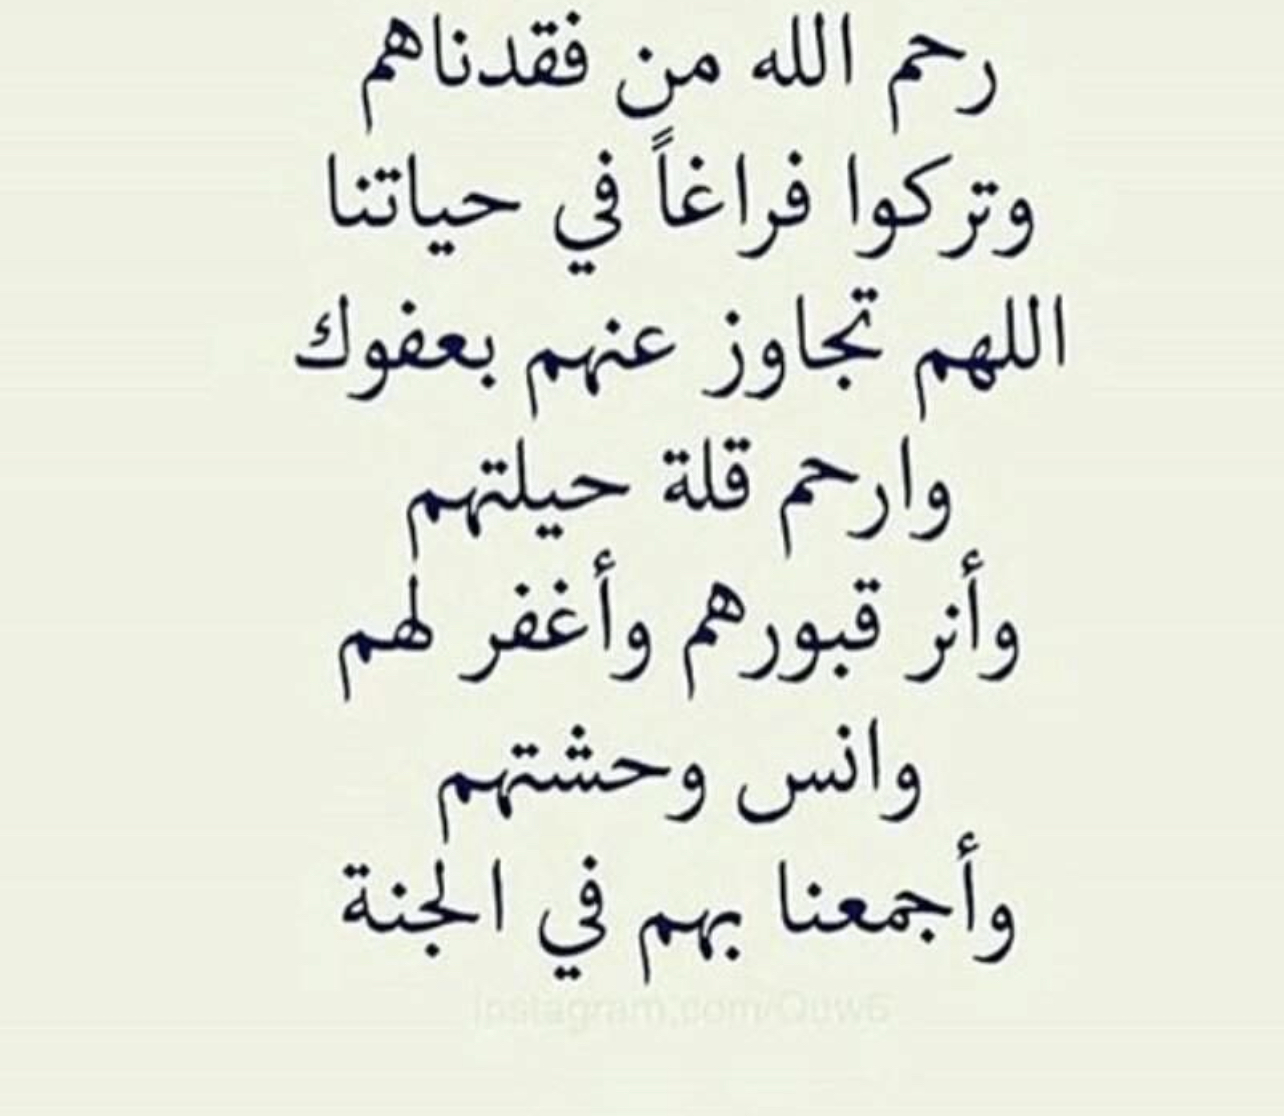 رحم الله من فقدناهم
وتركوا فراغاً في حياتنا
اللهم تجاوز عنهم بعفوك
وارحم قلة حيلتهم
وأنر قبورهم وأغفر لهم
وانس وحشتهم
وأجمعنا بهم في الجنة
instagram.com/Quw6